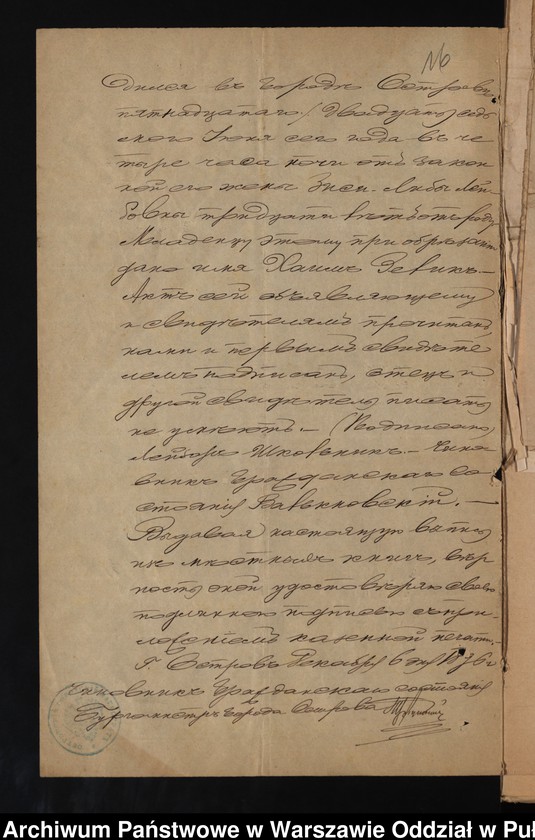 16
дился въ городѣ Островѣ
пятнадцатаго / двадцать седь
мого Іюня сего года въ че
тыре часа ночи отъ закон
ной его жены Зиси-Либы Лей
бовны тридцати лѣтъ отъ роду
Младенцу этому при обрѣзаніи
дано имя Хаимъ Зевикъ —
Актъ сей объявляющему
и свидѣтелямъ прочитанъ
нами и первымъ свидѣте
лемъ подписанъ, отецъ и
другой свидѣтель писать
не умѣютъ. — (Подписано)
Лейборъ Шковникъ — Чино
вникъ Гражданскаго со-
стоянія —
Выдавая настоящую выпись
изъ мѣстныхъ книгъ, вѣр
ность оной удостовѣряю своею
подлинною подписью съ при
ложеніемъ казенной печати.
Г. Островъ Декабря 6 дня 1876 г.
Чиновникъ Гражданскаго состоянія
Бургомистръ города Острова
Archiwum Państwowe w Warszawie Oddział w Puł